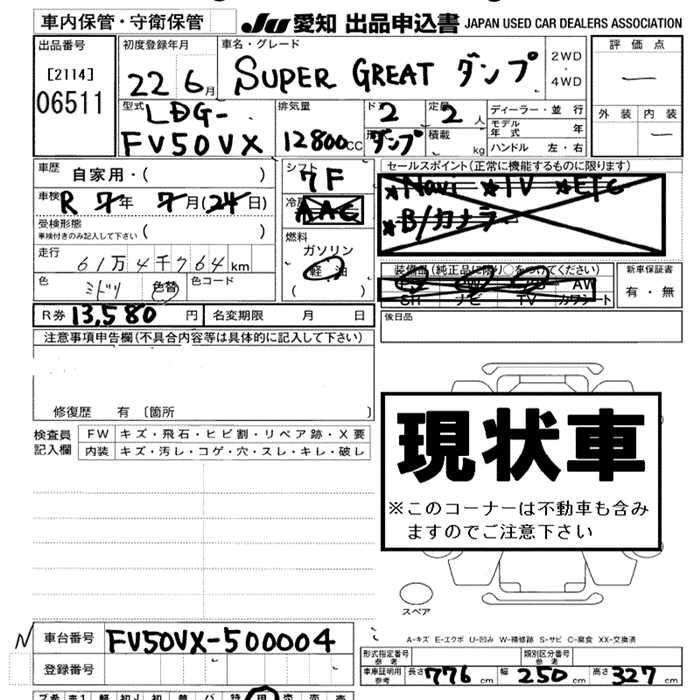 車内保管・守衛保管 JU 愛知 出品申込書 JAPAN USED CAR DEALERS ASSOCIATION
出品番号 初度登録年月 車名・グレード 評価点
[2114] 06511 22年6月 SUPER GREAT ダンプ 2WD・4WD —
外装 内装
—
型式 排気量 ド 定員 ディーラー・並行
LDG- 2 2人 モデル年式 年
FV50VX 12800cc 形 ダンプ 積載 kg ハンドル 左・右
車歴 自家用・( ) シフト 7F セールスポイント(正常に機能するものに限ります)
車検 R 7年 7月(24日) 冷房 AAC ★Navi ★TV ★ETC
受検形態 ★B/カメラ
車検付きのみ記入して下さい ( )
走行 燃料
61万4千764km ガソリン
色 色替 色コード 軽油 装備品(純正品に限り○をつけてください) 新車保証書
ミドリ ( ) PS PW AB AW 有・無
SH ナビ TV カワシート
R券 13,580円 名変期限 月 日 後日品
注意事項申告欄(不具合内容等は具体的に記入して下さい)
修復歴 有 〔箇所 〕
検査員記入欄 FW キズ・飛石・ヒビ割・リペア跡・X要
内装 キズ・汚レ・コゲ・穴・スレ・キレ・破レ
現状車
※このコーナーは不動車も含み
ますのでご注意下さい
スペア
A-キズ E-エクボ U-凹み W-補修跡 S-サビ C-腐食 XX-交換済
N 車台番号 FV50VX-500004
登録番号
形式指定番号 参考 類別区分番号 参考
車庫証明用参考 長さ 776cm 幅 250cm 高さ 327cm